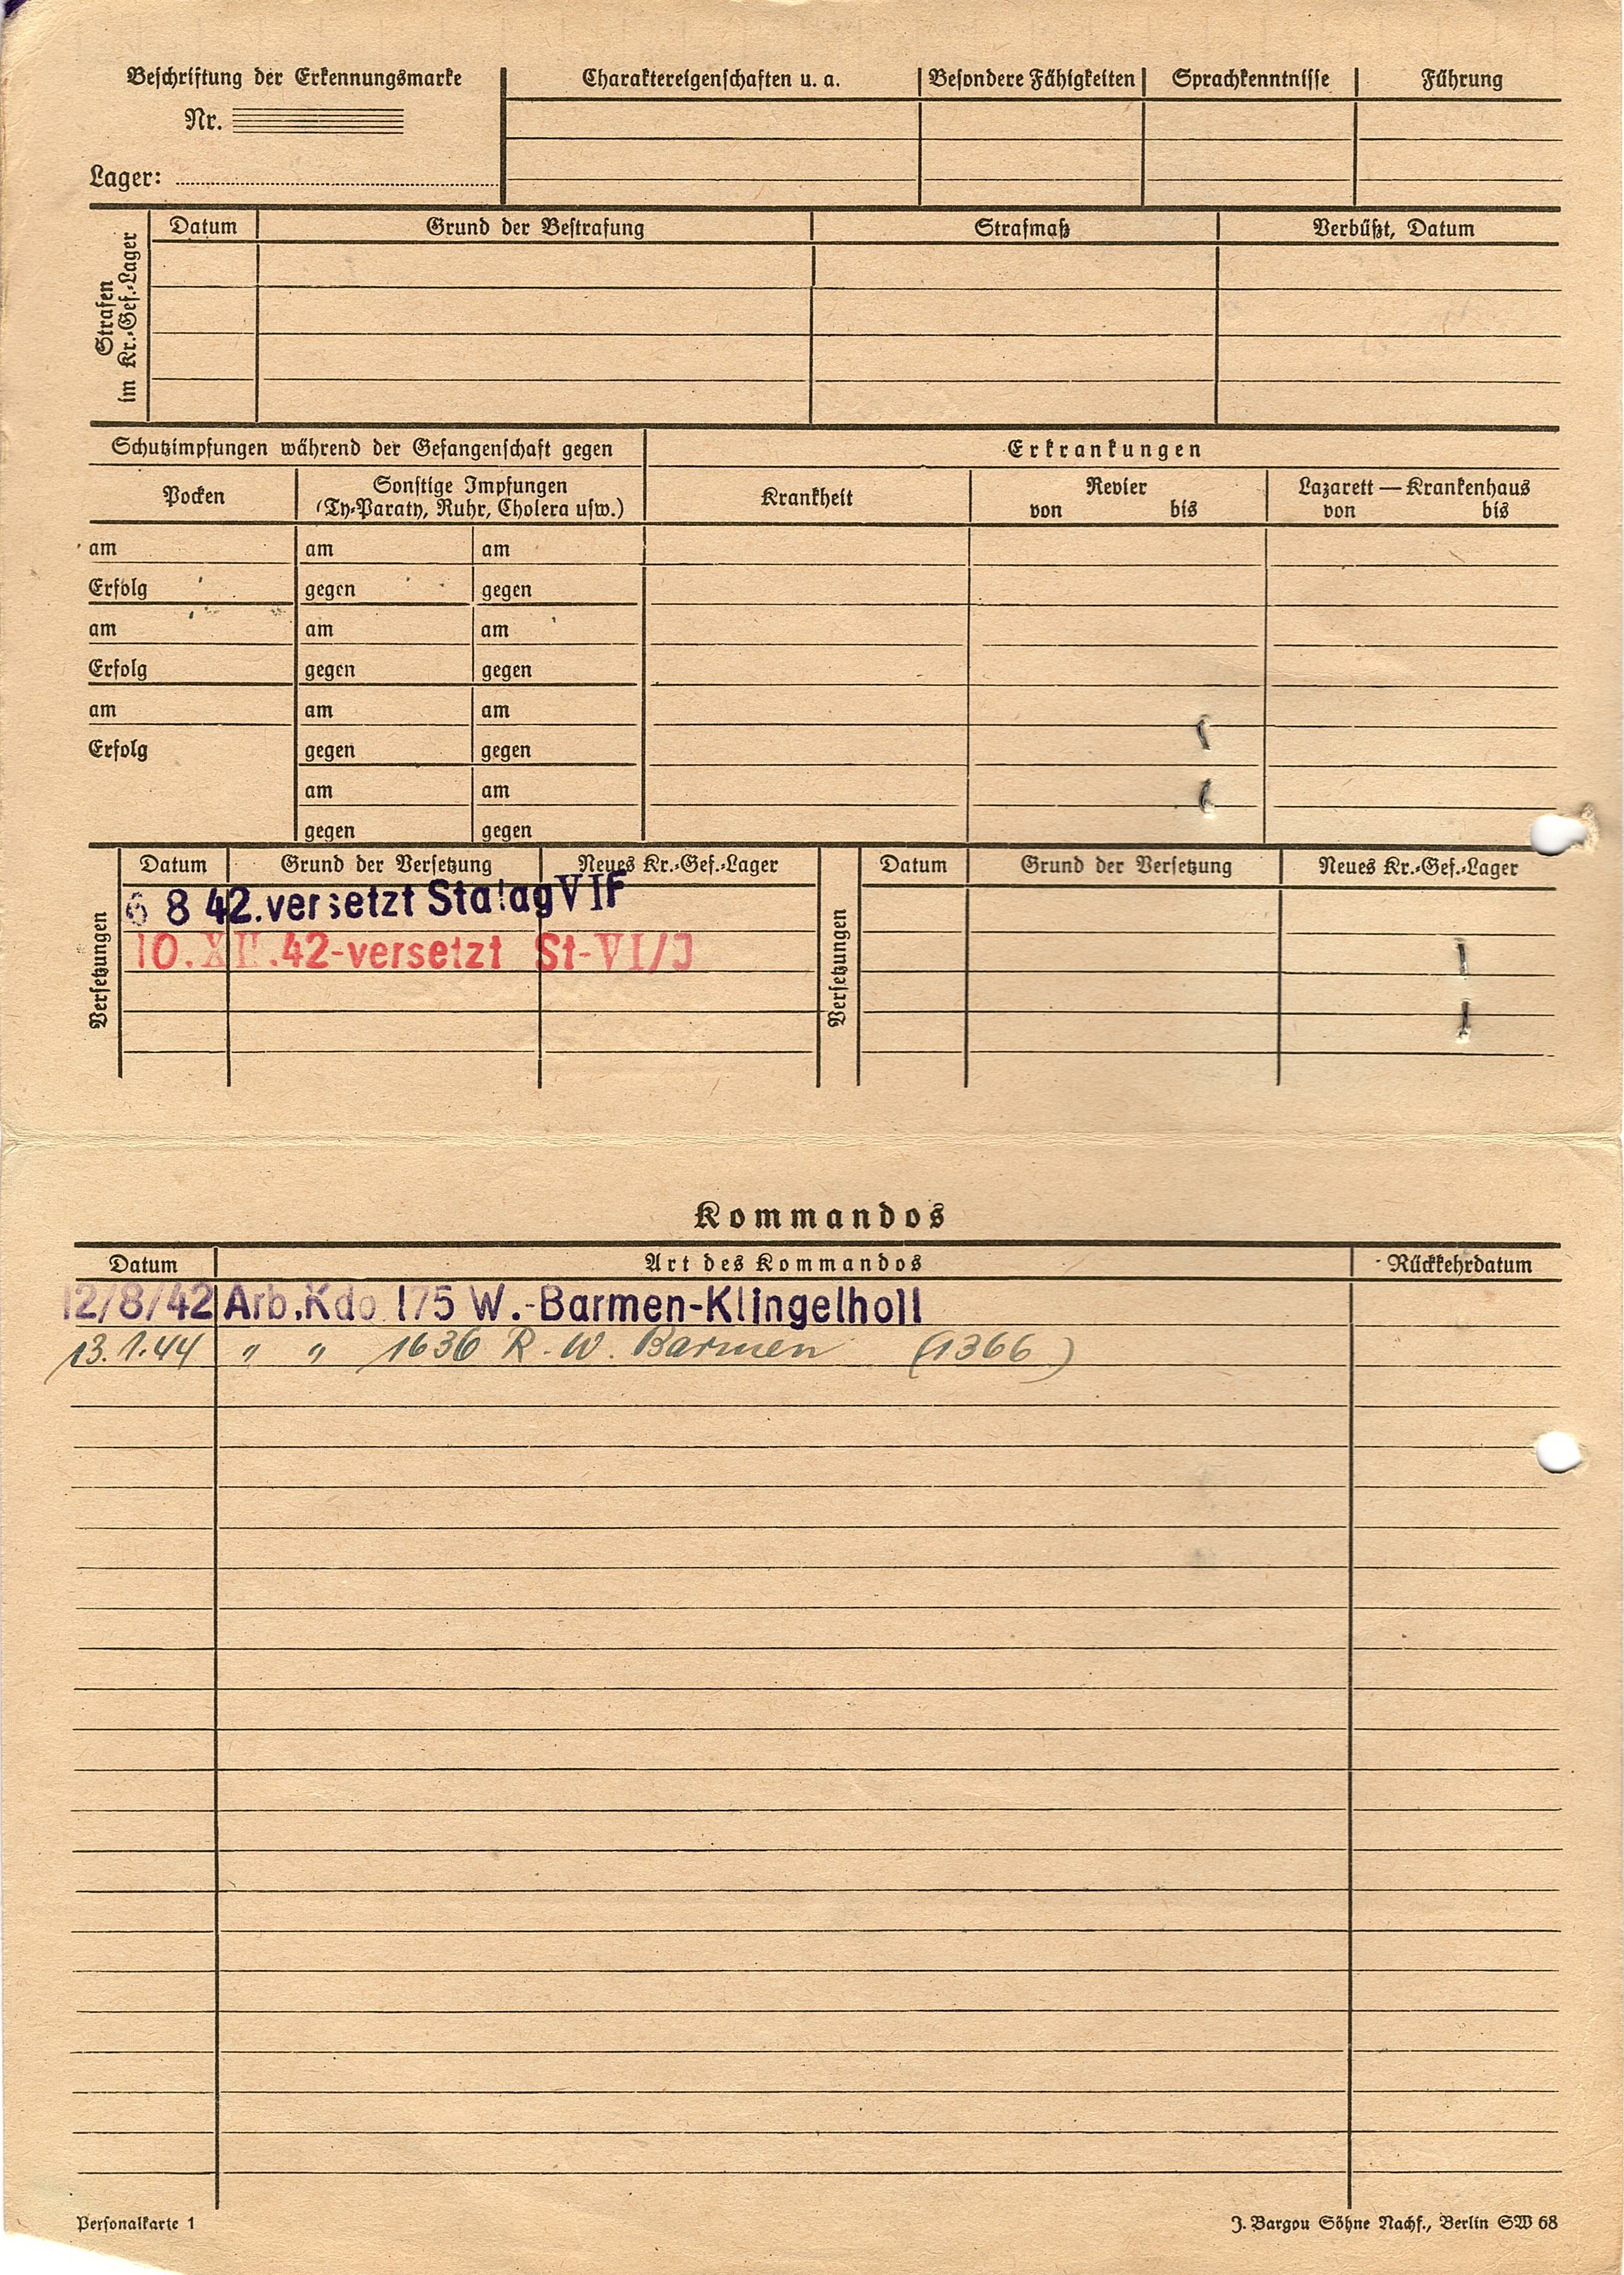 Beschriftung der Erkennungsmarke
Nr.
Lager:
Charaktereigenschaften u. a. Besondere Fähigkeiten Sprachkenntnisse Führung
Strafen
im Kr.-Gef.-Lager
Datum Grund der Bestrafung Strafmaß Verbüßt, Datum
Schutzimpfungen während der Gefangenschaft gegen Erkrankungen
Pocken Sonstige Impfungen Krankheit Revier Lazarett — Krankenhaus
(Ty-Paraty, Ruhr, Cholera usw.) von bis von bis
am am am
Erfolg gegen gegen
am am am
Erfolg gegen gegen
am am am
Erfolg gegen gegen
am am
gegen gegen
Versetzungen
Datum Grund der Versetzung Neues Kr.-Gef.-Lager
6 8 42. versetzt Stalag VI F
10. XII. 42-versetzt St-VI/J
Versetzungen
Datum Grund der Versetzung Neues Kr.-Gef.-Lager
Kommandos
Datum Art des Kommandos Rückkehrdatum
12/8/42 Arb.Kdo 175 W.-Barmen-Klingelholl
13.1.44 " " 1636 R. W. Barmen (1366)
Personalkarte 1
J. Bargou Söhne Nachf., Berlin SW 68